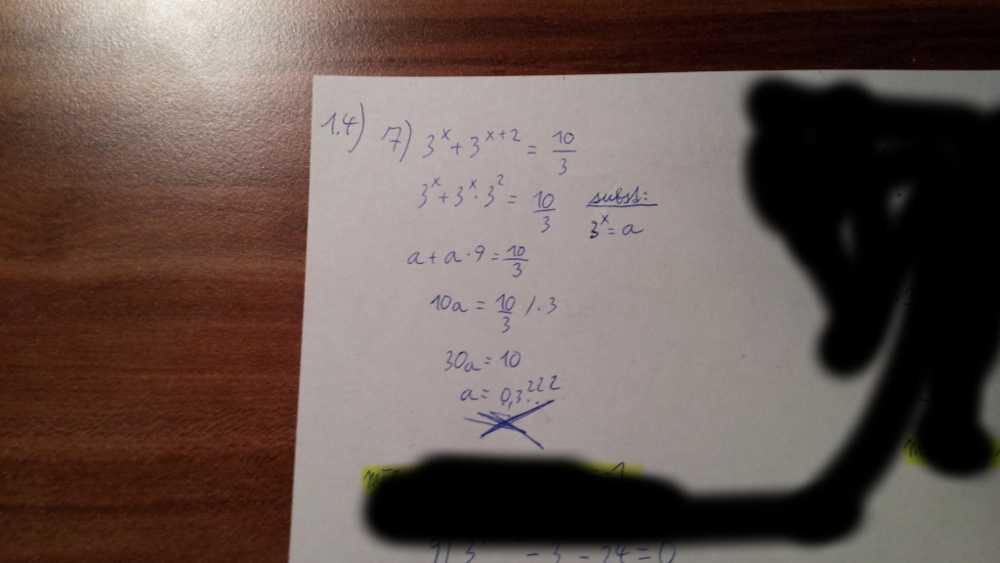 1.4) 7) 3^x + 3^(x+2) = 10/3
3^x + 3^x · 3^2 = 10/3 subst:
3^x = a
a + a · 9 = 10/3
10a = 10/3 / · 3
30a = 10
a = 0,3...???
- 3 - 24 = 0